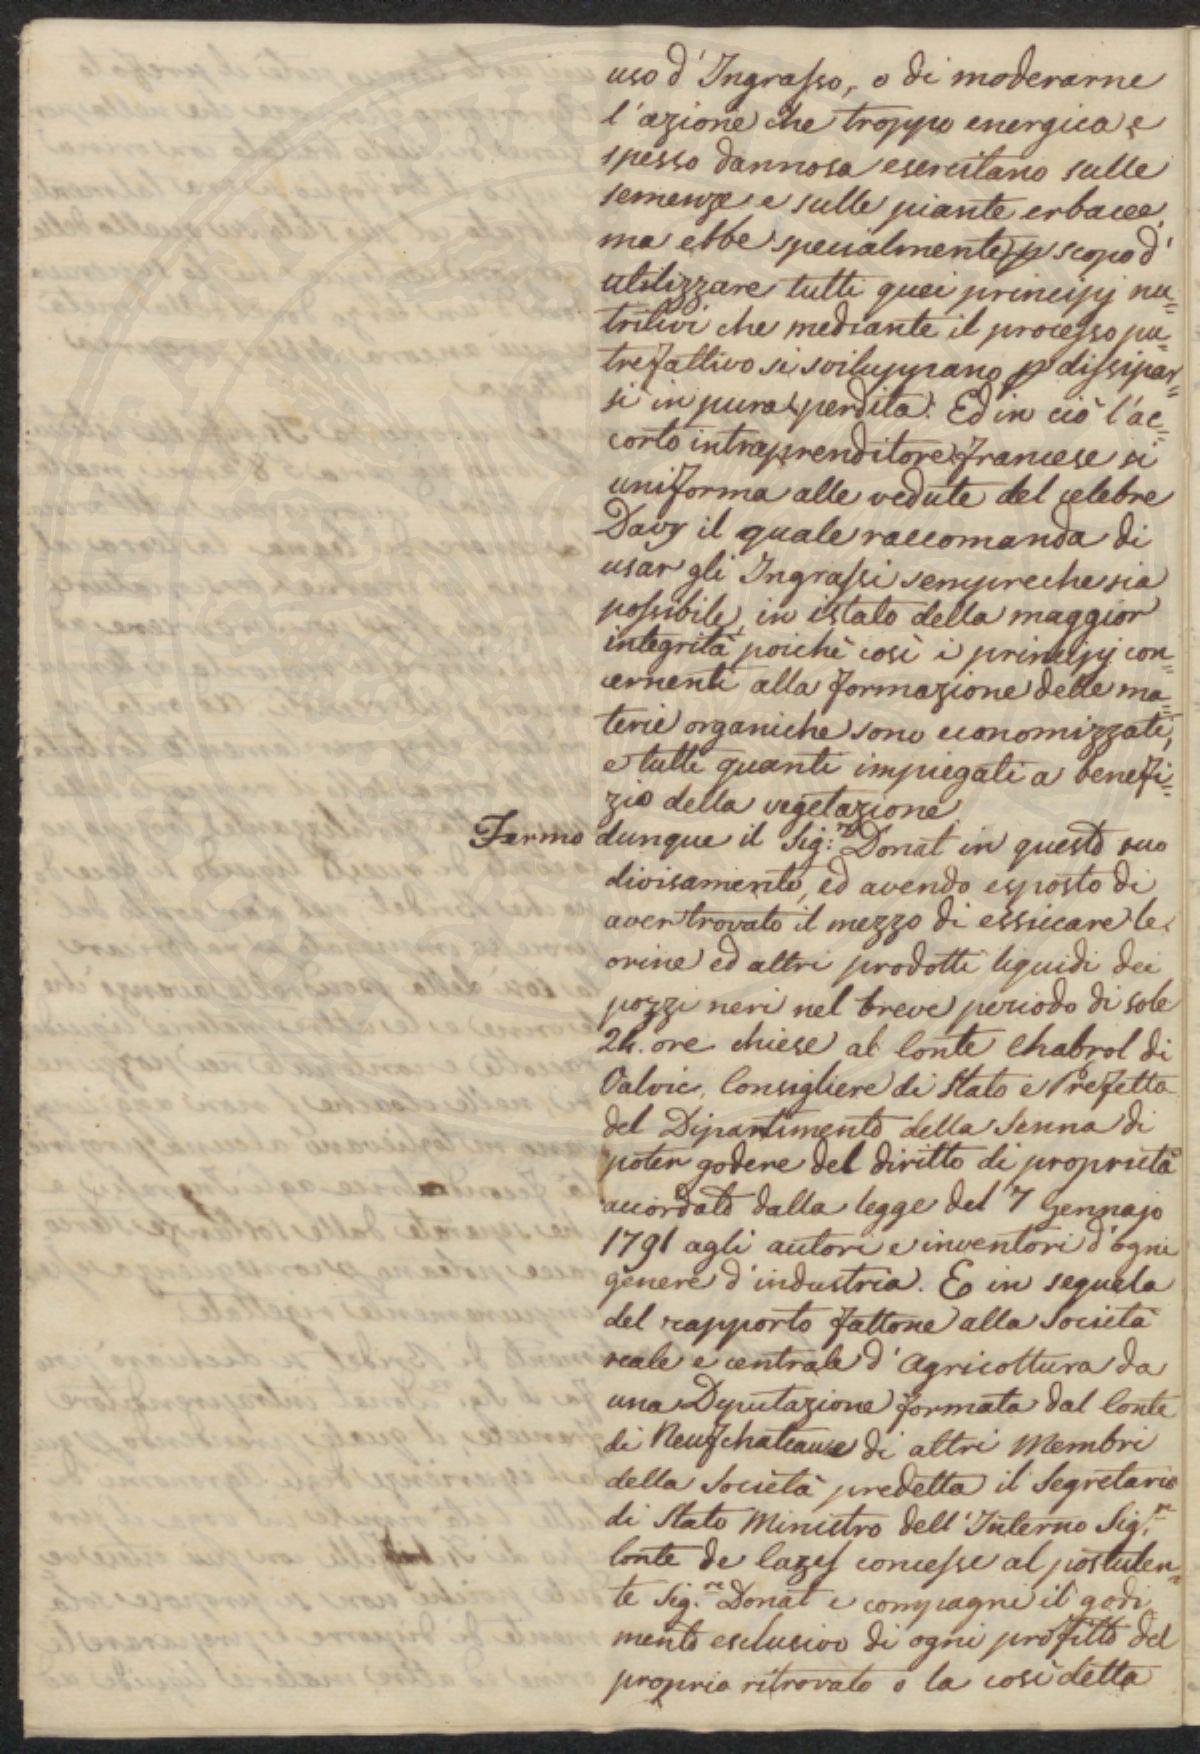 uso d'Ingrasso, o di moderarne
l'azione che troppo energica e
spesso dannosa esercitano sulle
semenze e sulle piante erbacee,
ma ebbe specialmente p scopo d'
utilizzare tutti quei principj nu=
tritivi che mediante il processo pu=
trefattivo si sviluppano p dissipar=
si in pura perdita. Ed in ciò l'ac=
corto intraprenditore francese si
uniforma alle vedute del celebre
Davy il quale raccomanda di
usar gli Ingrassi sempreche sia
possibile, in istato della maggior
integrità, poichè così i principj con=
cernenti alla formazione delle ma=
terie organiche sono economizzati,
e tutti quanti impiegati a benefi=
zio della vegetazione
Fermo dunque il Sig:re Donat in questo suo
divisamento, ed avendo esposto di
aver trovato il mezzo di essiccare le
orine ed altri prodotti liquidi dei
pozzi neri nel breve periodo di sole
24. ore chiese al Conte Chabrol di
Volvic, Consigliere di Stato e Prefetto
del Dipartimento della Senna di
poter godere del diritto di proprietà
accordato dalla legge del 7 Gennajo
1791 agli autori e inventori d'ogni
genere d'industria. E in seguela
del rapporto fattone alla Società
reale e centrale d'Agricoltura da
una Deputazione formata dal Conte
di Neufchateau e di altri Membri
della Società predetta il Segretario
di Stato Ministro dell'Interno Sig.re
Conte de Cazes concesse al postulen=
te Sig.re Donat e compagni il godi
mento esclusivo di ogni profitto del
proprio ritrovato o la così detta